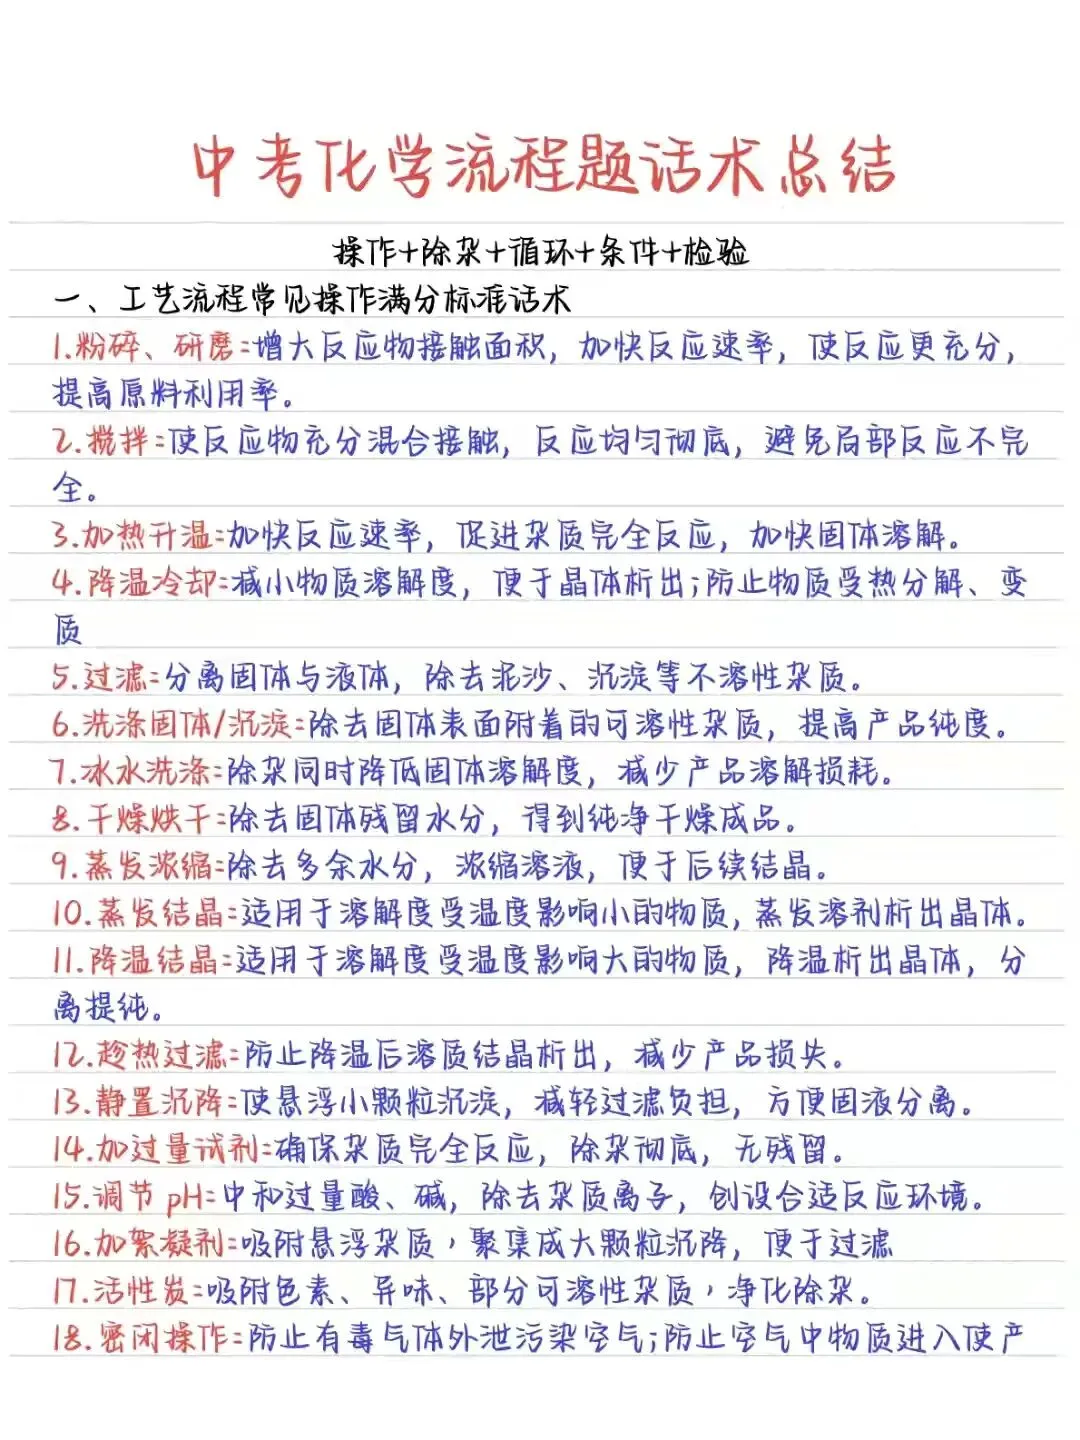 中考化学流程题话术总结
操作+除杂+循环+条件+检验
一、工艺流程常见操作满分标准话术
1.粉碎、研磨:增大反应物接触面积，加快反应速率，使反应更充分，
提高原料利用率。
2.搅拌:使反应物充分混合接触，反应均匀彻底，避免局部反应不完
全。
3.加热升温:加快反应速率，促进杂质完全反应，加快固体溶解。
4.降温冷却:减小物质溶解度，便于晶体析出;防止物质受热分解、变
质
5.过滤:分离固体与液体，除去泥沙、沉淀等不溶性杂质。
6.洗涤固体/沉淀:除去固体表面附着的可溶性杂质，提高产品纯度。
7.冰水洗涤:除杂同时降低固体溶解度，减少产品溶解损耗。
8.干燥烘干:除去固体残留水分，得到纯净干燥成品。
9.蒸发浓缩:除去多余水分，浓缩溶液，便于后续结晶。
10.蒸发结晶:适用于溶解度受温度影响小的物质,蒸发溶剂析出晶体。
11.降温结晶:适用于溶解度受温度影响大的物质，降温析出晶体，分
离提纯。
12.趁热过滤:防止降温后溶质结晶析出，减少产品损失。
13.静置沉降:使悬浮小颗粒沉淀，减轻过滤负担，方便固液分离。
14.加过量试剂:确保杂质完全反应，除杂彻底，无残留。
15.调节pH:中和过量酸、碱，除去杂质离子，创设合适反应环境。
16.加絮凝剂:吸附悬浮杂质，聚集成大颗粒沉降，便于过滤
17.活性炭:吸附色素、异味、部分可溶性杂质，净化除杂。
18.密闭操作:防止有毒气体外泄污染空气;防止空气中物质进入使产